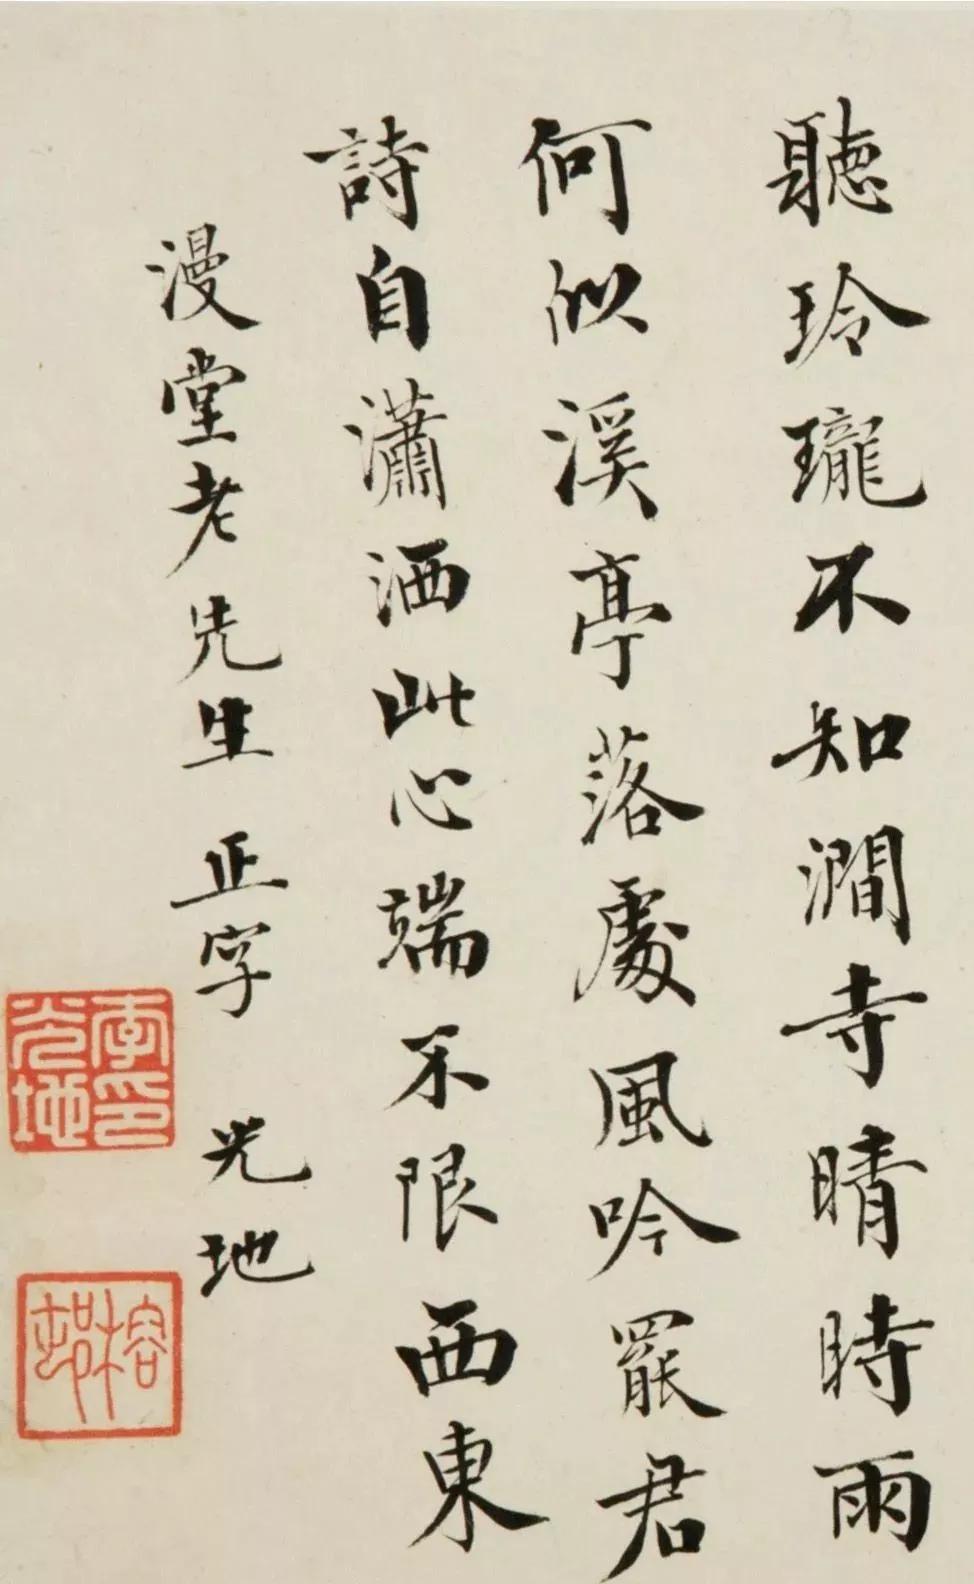 聽玲瓏不知澗寺晴時雨
何似溪亭落處風吟罷君
詩自瀟洒此心端不限西東
漫堂老先生正字 光地
李光地印
榕邨